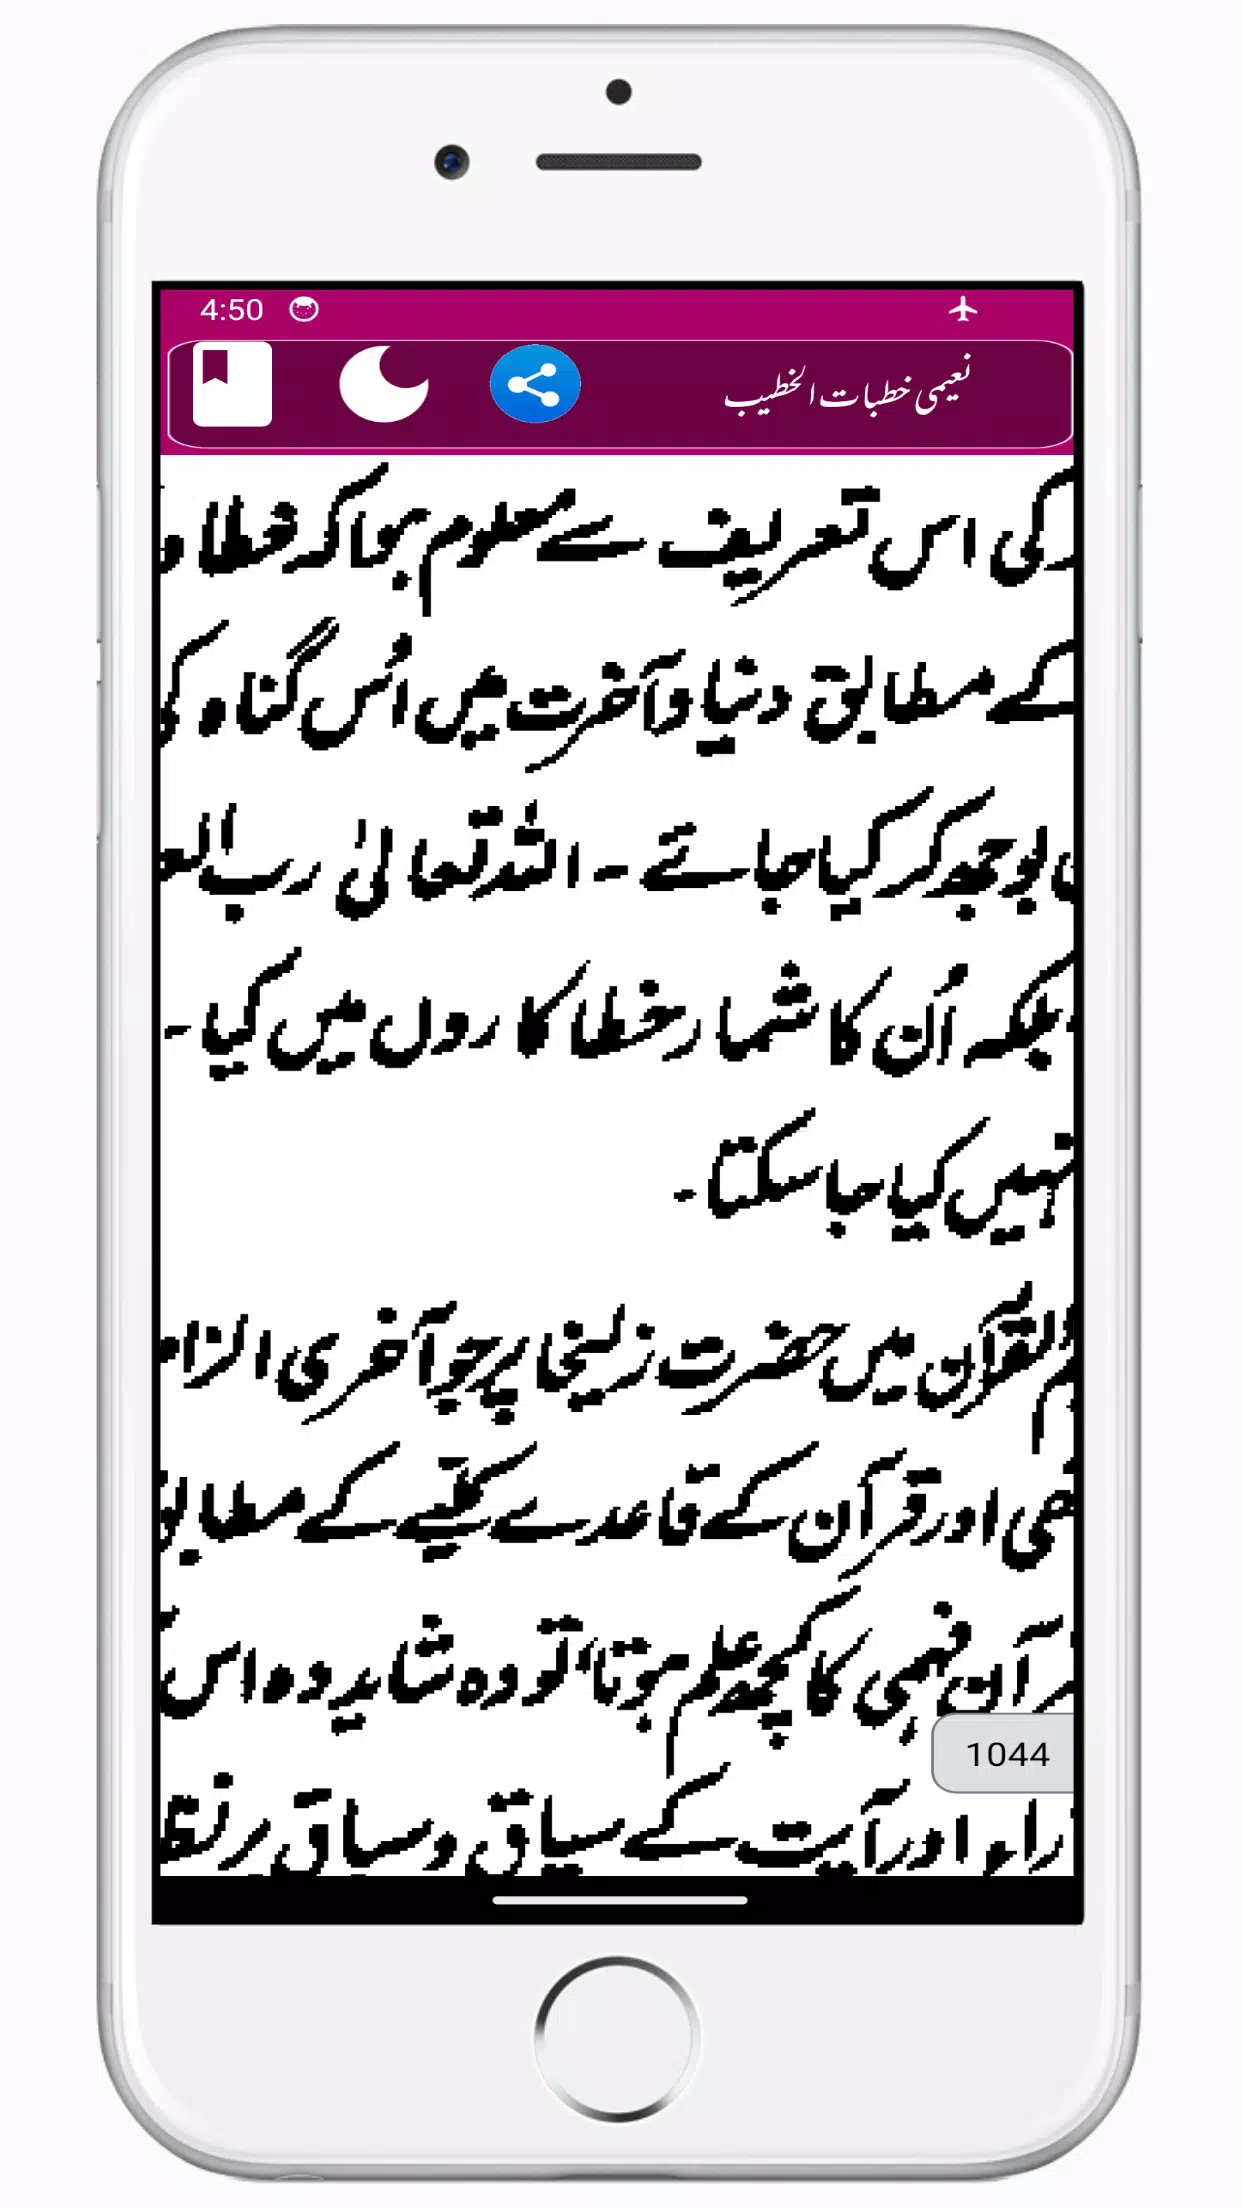 4:50
نعیمی خطبات الخطیب
کی اس تعریف سے معلوم ہوا کہ خطا و
کے مطابق دنیا و آخرت میں اُس گناہ کی
بوجھ کر کیا جائے ۔ اللہ تعالیٰ رب
بلکہ اُن کا شمار خطا کا روں میں کیا ۔
نہیں کیا جا سکتا ۔
القرآن میں حضرت زلیخا پر جو آخری الزام
اور قرآن کے قاعدے کلیے کے مطابق
آن فہمی کا کچھ علم ہوتا، تو وہ شاید وہ اس
1044
اور آیت کے سیاق و سباق پر نظر